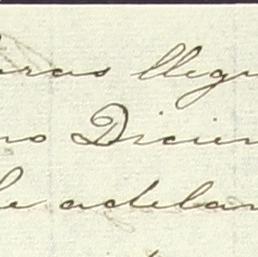 aras llegu
no Dicien
le adelan